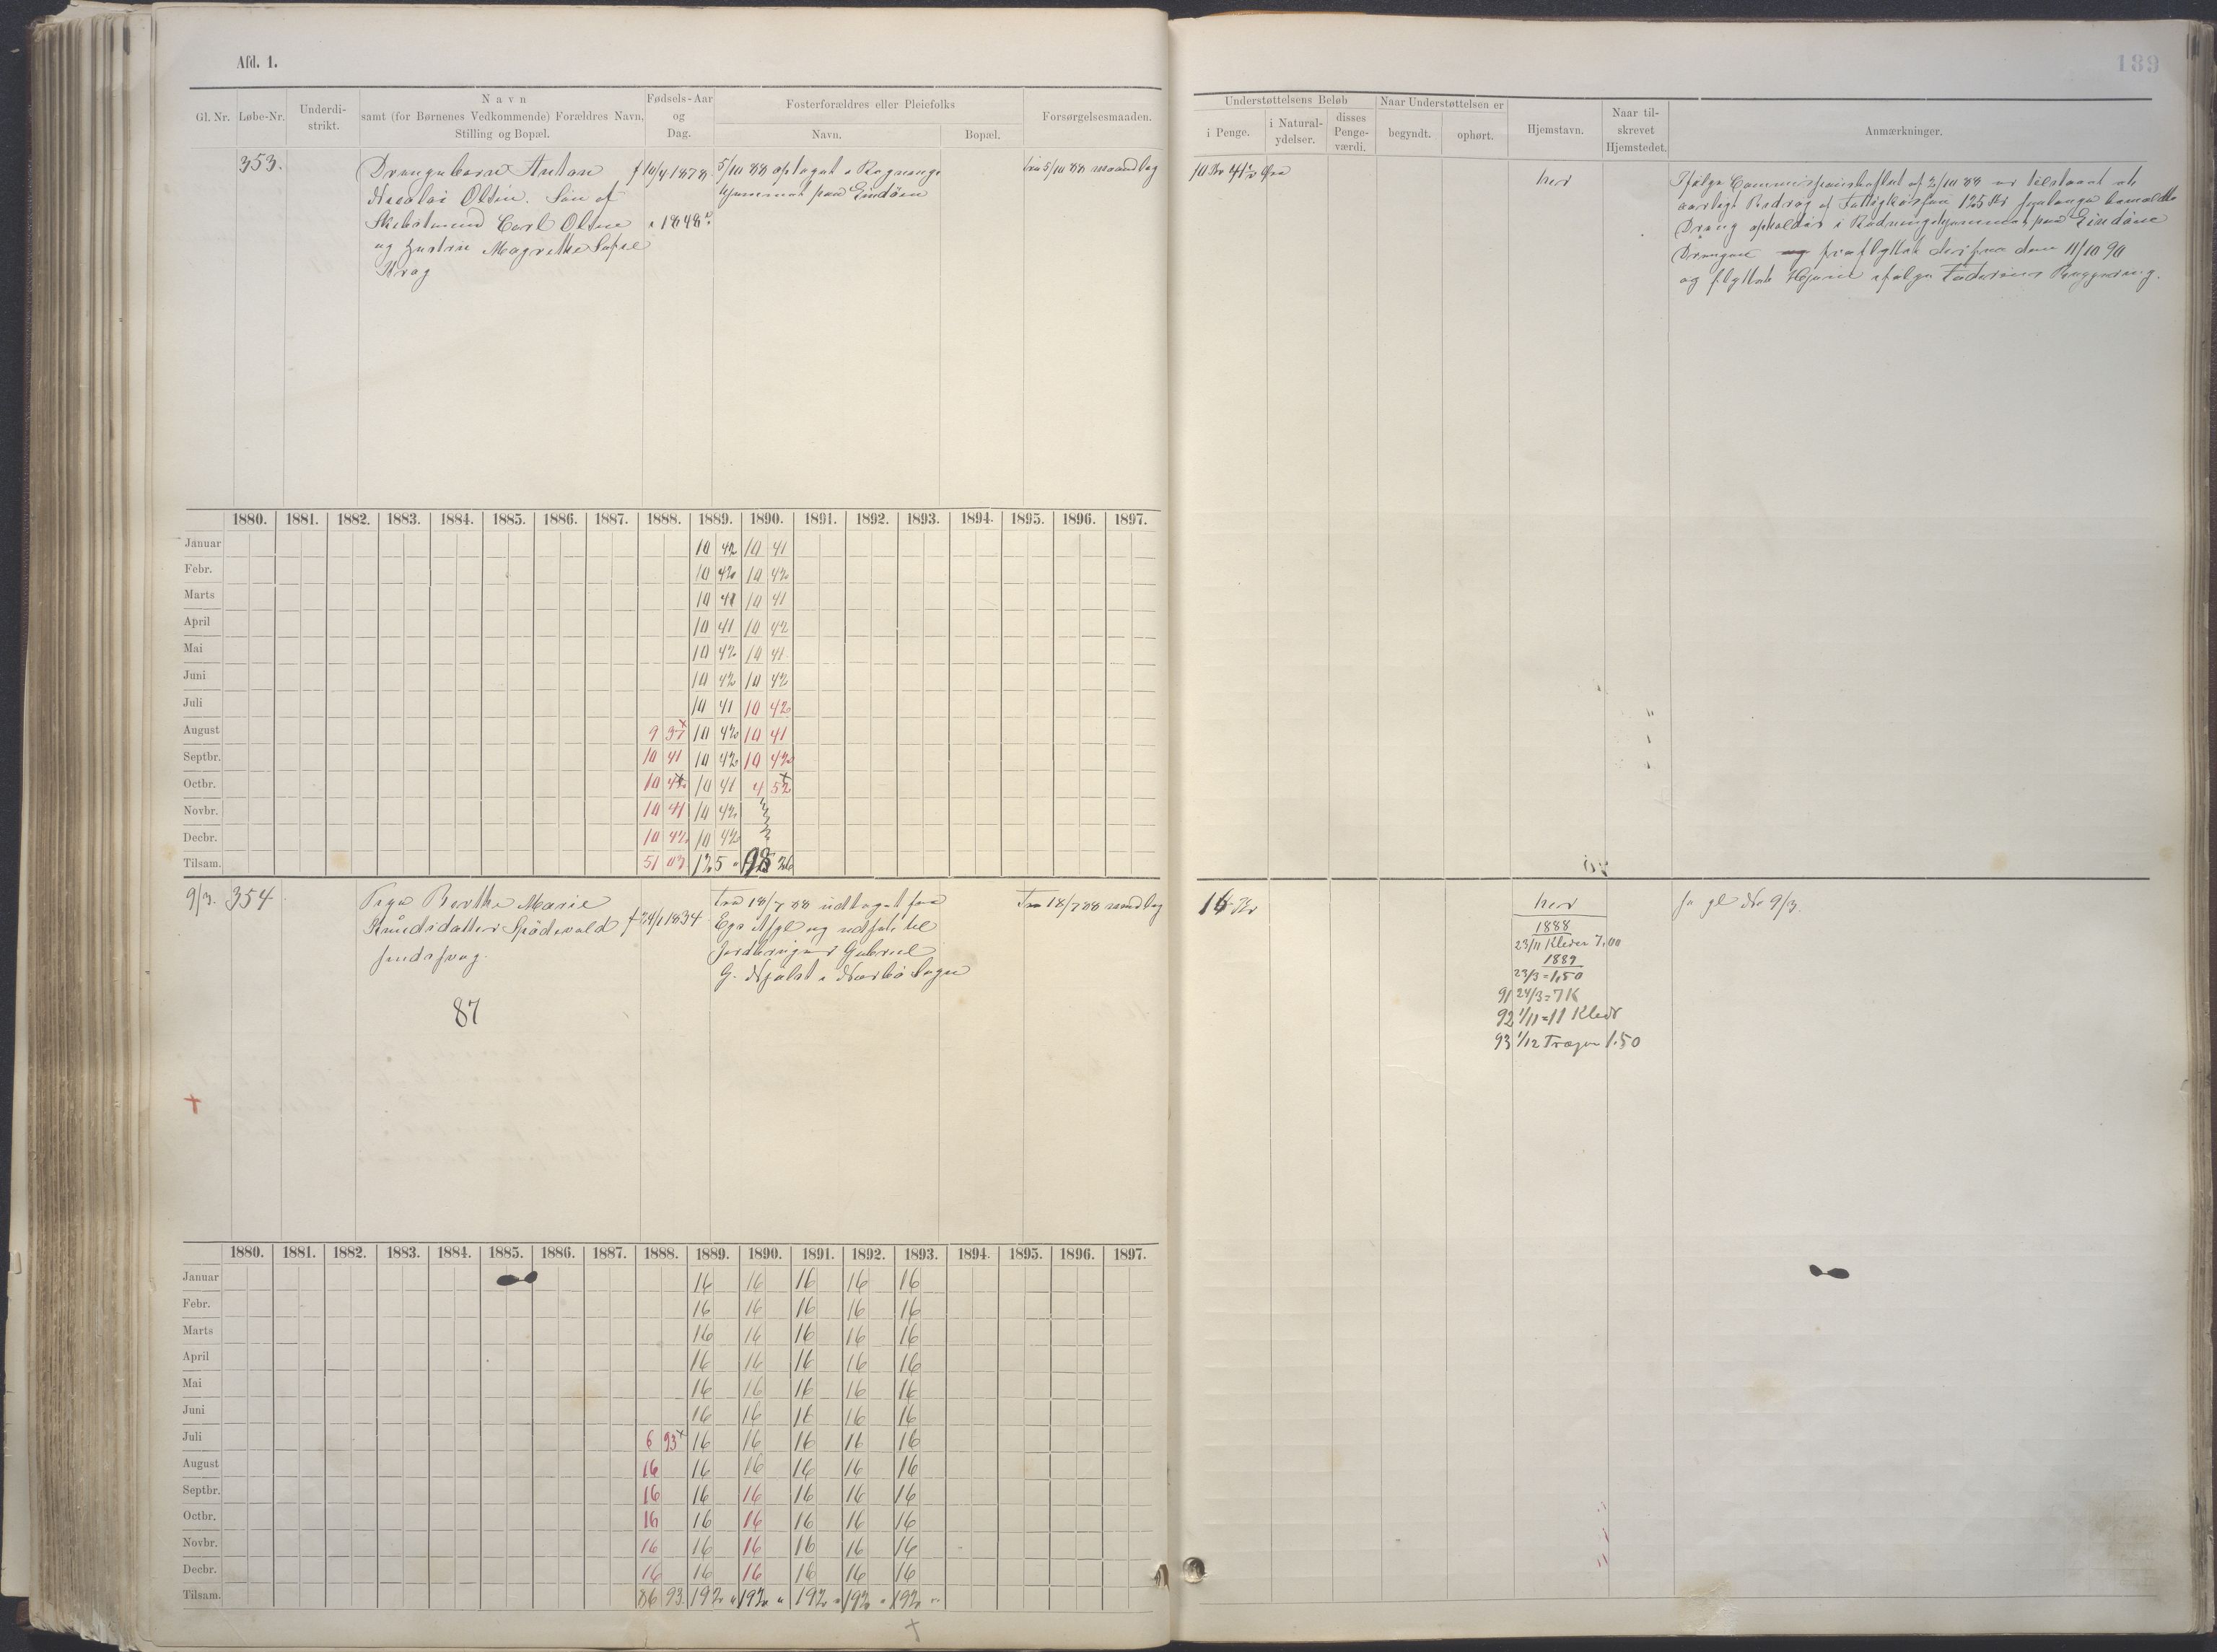 Afd. 1.
189
Gl. Nr.
Løbe-Nr.
Underdi-
strikt.
Navn
samt (for Børnenes Vedkommende) Forældres Navn,
Stilling og Bopæl.
Fødsels-Aar
og
Dag.
Fosterforældres eller Pleiefolks
Navn.
Bopæl.
Forsørgelsesmaaden.
Understøttelsens Beløb
i Penge.
i Natural-
ydelser.
disses
Penge-
værdi.
Naar Understøttelsen er
begyndt.
ophørt.
Hjemstavn.
Naar til-
skrevet
Hjemstedet.
Anmærkninger.
353.
Drengebarn Anton
Nicolai Olsen. Søn af
Carl Olsen
og Hustru Magrethe
Krag
f 10/4 1878
1848
5/10 88 optaget i
hjemmet paa Lindøen
fra 5/10 88
10 Kr 41 Øre
her
Ifølge af 2/10 88 er tilstaaet et
aarligt Bidrag af 125 Kr saalænge
Dreng opholder i Redningshjemmet paa Lindøen
Drengen fraflyttet derfra den 11/10 90
og flyttet Hjem ifølge Faderens
1880. 1881. 1882. 1883. 1884. 1885. 1886. 1887. 1888. 1889. 1890. 1891. 1892. 1893. 1894. 1895. 1896. 1897.
Januar 10 42 10 41
Febr. 10 42 10 42
Marts 10 41 10 41
April 10 41 10 42
Mai 10 42 10 41
Juni 10 42 10 42
Juli 10 41 10 42
August 9 37 10 42 10 41
Septbr. 10 41 10 42 10 42
Octbr. 10 42 10 41 4 52
Novbr. 10 41 10 42 "
Decbr. 10 42 10 42 "
Tilsam. 51 03 125 " 98 26
9/3. 354
Pige Berthe Marie
Knudsdatter Spødevold
f 24/1 1834
87
Fra 18/7 88 udtaget fra
Egs Asyl og udsat til
Jordbruger Gabriel
G. Njølst i Nærbø Sogn
Fra 18/7 88
16 Kr
her
1888
23/11 Klæder 7,00
1889
23/3 = 1,50
91 24/3 = 7 K
92 1/11 = 11 Klædr
93 1/12 1.50
gl Nr 9/3.
1880. 1881. 1882. 1883. 1884. 1885. 1886. 1887. 1888. 1889. 1890. 1891. 1892. 1893. 1894. 1895. 1896. 1897.
Januar 16 16 16 16 16
Febr. 16 16 16 16 16
Marts 16 16 16 16 16
April 16 16 16 16 16
Mai 16 16 16 16 16
Juni 16 16 16 16 16
Juli 6 93 16 16 16 16 16
August 16 16 16 16 16 16
Septbr. 16 16 16 16 16 16
Octbr. 16 16 16 16 16 16
Novbr. 16 16 16 16 16 16
Decbr. 16 16 16 16 16 16
Tilsam. 86 93 192 " 192 " 192 " 192 " 192 "